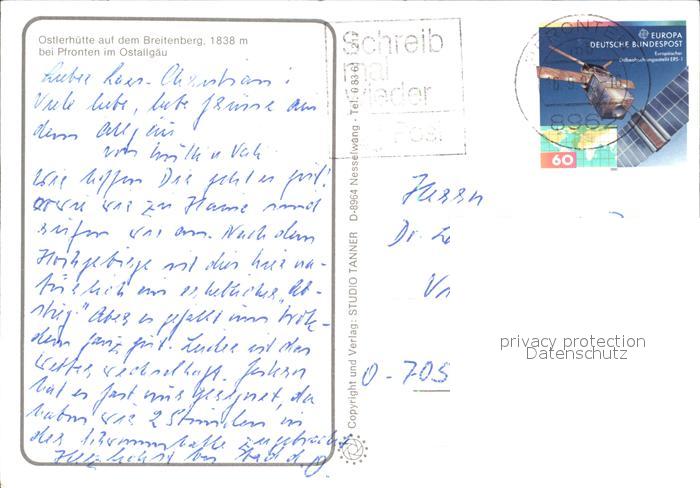 Ostlerhütte auf dem Breitenberg, 1838 m
bei Pfronten im Ostallgäu
Lieber Lars-Christian!
Viele liebe, liebe Grüsse aus
dem Allgäu
von
Wir hoffen Dir geht es gut!
wir zu Hause sind
rufen wir an. Nach dem
Hochgebirge ist dies hier na-
türlich ein erheblicher "Ab-
stieg". Aber es gefällt uns trotz-
dem ganz gut. Leider ist das
Wetter wechselhaft. Gestern
hat es fast nur geregnet, da
haben wir 2 Stunden in
der Schwimmhalle zugebracht
Herzlichst bis bald
Copyright und Verlag: STUDIO TANNER D-8964 Nesselwang · Tel. 0 83 61
Schreib
mal
wieder
Post
PFRONTEN
8962
EUROPA
DEUTSCHE BUNDESPOST
Europäischer
Erdbeobachtungssatellit ERS-1
60
Herrn
Dr.
O-705
privacy protection
Datenschutz